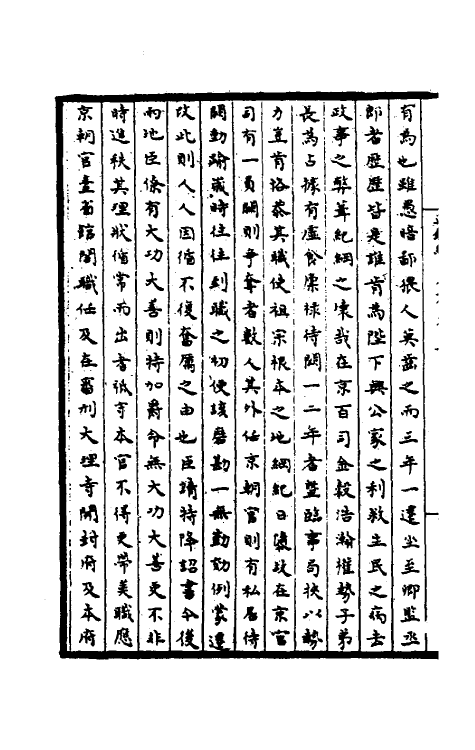 有為也雖愚暗鄙猥人莫齒之而三年一遷坐至卿監丞
郎者歷歷皆是誰肯為陛下興公家之利救生民之病去
政事之弊葺紀綱之壞哉在京百司金穀浩瀚權勢子弟
長為占據有虛食廩祿待闕一二年者暨臨事局挾以勢
力豈肯恪恭其職使祖宗根本之地綱紀日隳故在京官
司有一員闕則爭奪者數人其外任京朝官則有私居待
闕動踰歲時往往到職之初便該磨勘一無勤効例蒙遷
改此則人人因循不復奮勵之由也臣請特降詔書今後
兩地臣僚有大功大善則特加爵命無大功大善更不非
時進秩其理狀循常而出者祗守本官不得更帶美職應
京朝官臺省館閣職任及在審刑大理寺開封府及本府